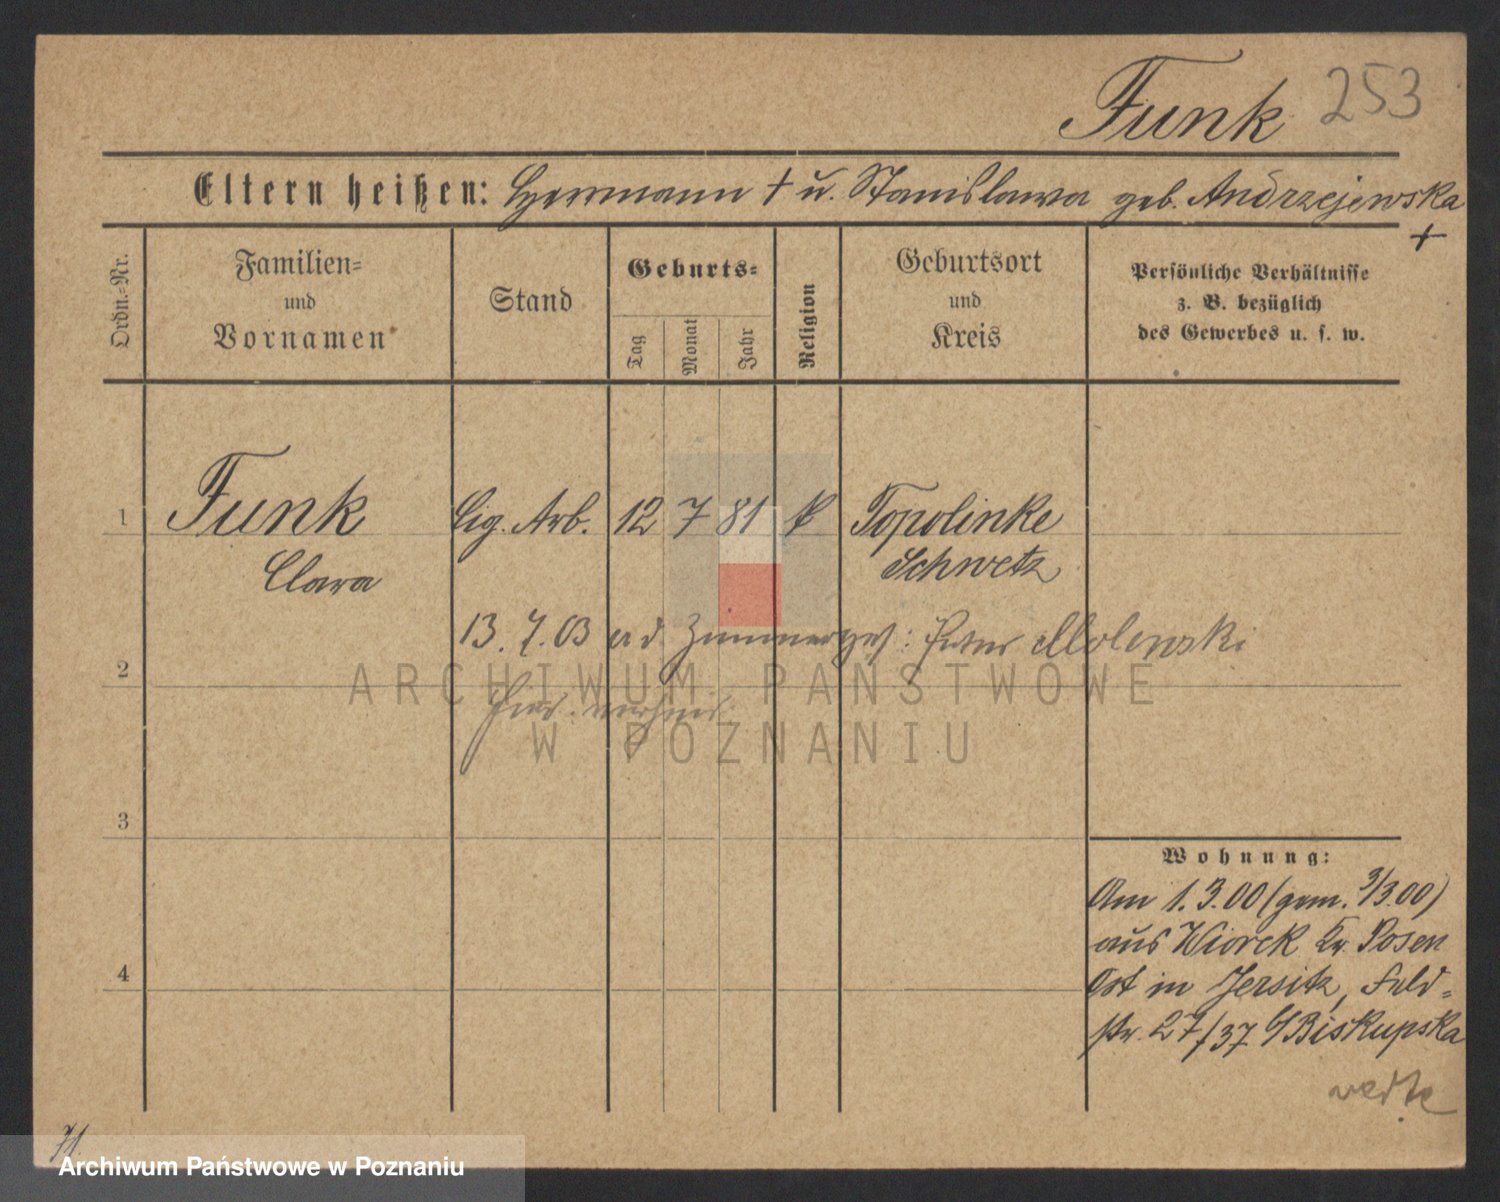 Funk 253
Eltern heißen: Herrmann † u. Stanislawa geb. Andrzejewska
+
Ordn.-Nr.
Familien-
und
Vornamen
Stand
Geburts-
Tag
Monat
Jahr
Religion
Geburtsort
und
Kreis
Persönliche Verhältnisse
z. B. bezüglich
des Gewerbes u. s. w.
1 Funk Cig. Arb. 12 7 81 k Topolinke
Clara Schwetz
13. 7. 03 Peter Molewski
2
ARCHIWUM PAŃSTWOWE
W POZNANIU
3
Wohnung:
Am 1. 3. 00 (gem. 3/3.00)
aus Wiorek Kr. Posen
4
Ost in Jersitz, Feld-
str. 27/37 b/Biskupska
verte
71.
Archiwum Państwowe w Poznaniu